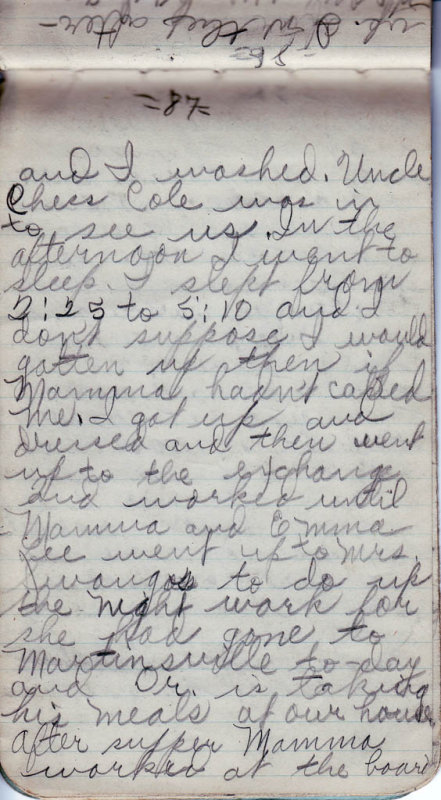 =86=
=87=
and I washed. Uncle
Chess Cole was in
to see us. In the
afternoon I went to
sleep. I slept from
2:25 to 5:10 and I
don't suppose I would
gotten up then if
Mamma hadn't called
me. I got up and
dressed and then went
up to the exchange
and worked until
Mamma and Emma
Lee went up to Mrs.
Swangos to do up
the night work for
she had gone to
Martinsville to-day
and Or. is taking
his meals at our house
after supper Mamma
worked at the board